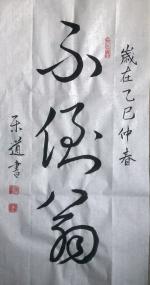 歲在乙巳仲春
不倒翁
乐道書